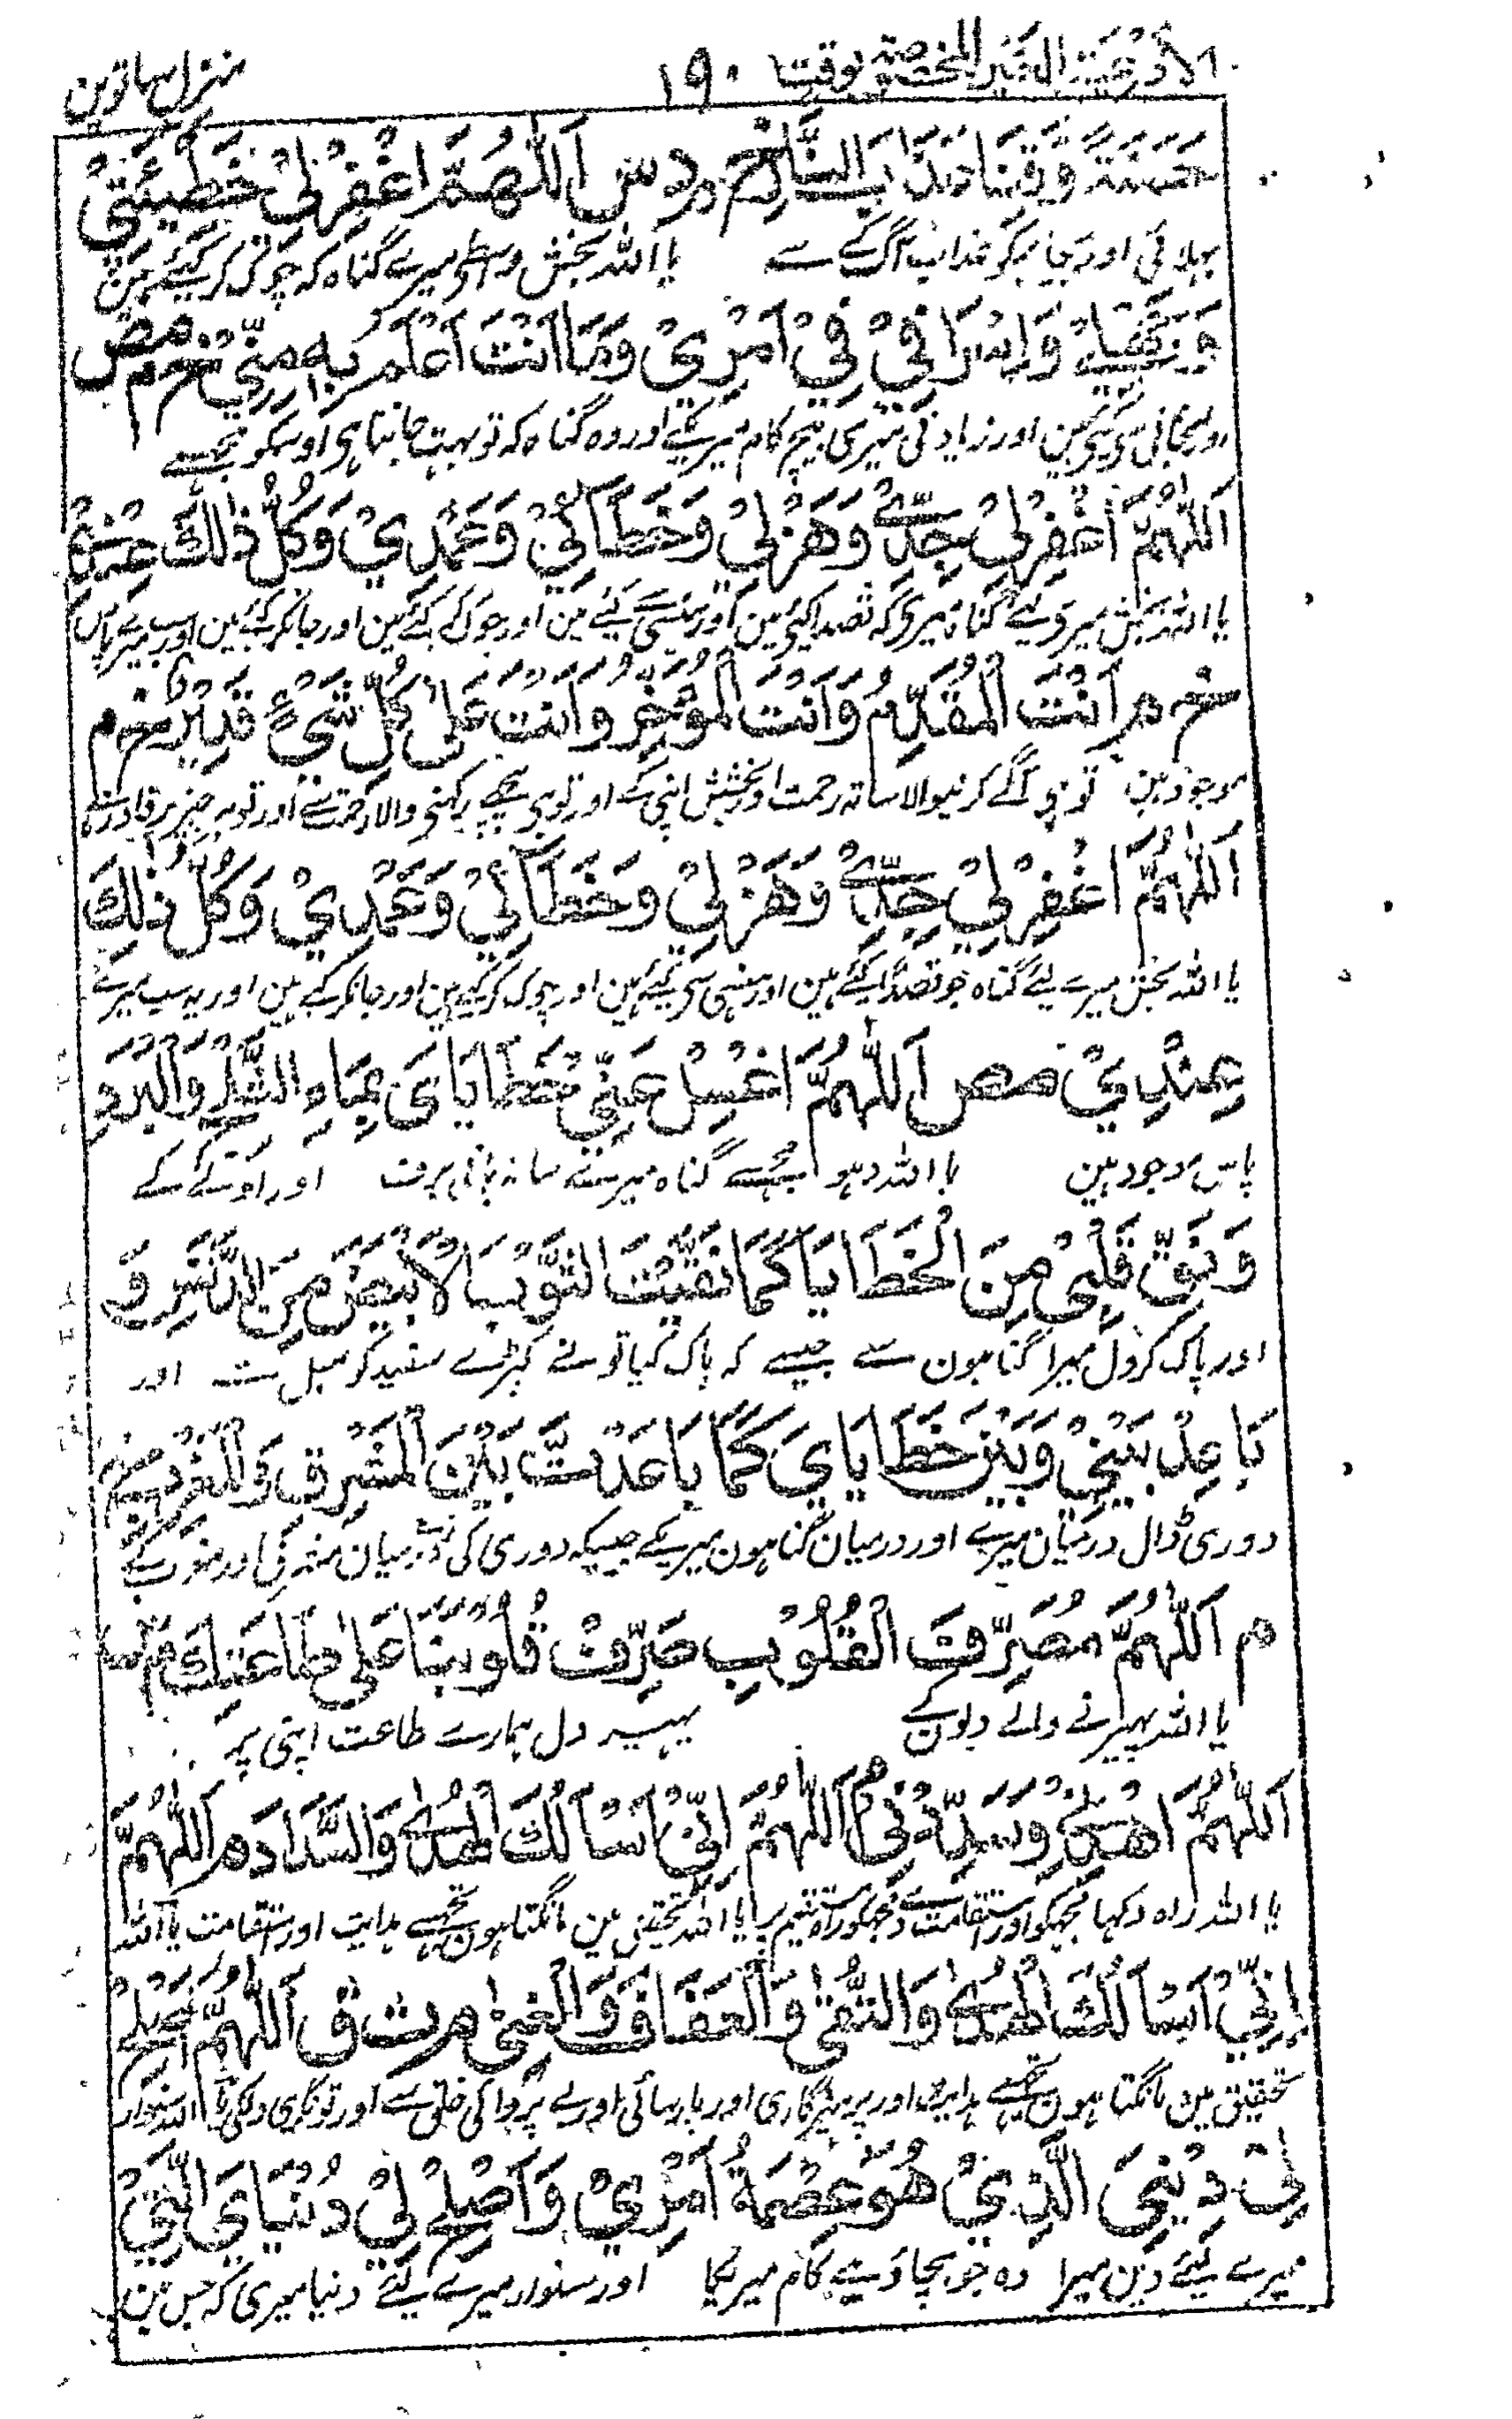 الأدعية الغير المخصصة بوقت ١٩٠ منزل ساتوین
حَسَنَةً وَّقِنَا عَذَابَ النَّارِ خ م د س اَللّٰهُمَّ اغْفِرْ لِيْ خَطِيْئَتِيْ
بہلائی اور بچا ہمکو عذاب آگ کے سے یا اللہ بخش واسطے میرے گناہ کہ چوک کر کیے ہین
وَجَهْلِيْ وَاِسْرَافِيْ فِيْ اَمْرِيْ وَمَا اَنْتَ اَعْلَمُ بِهٖ مِنِّيْ خ م مص
اور زیادتی میری بیچ کام میرے کے اور وہ گناہ کہ تو بہت جانتا ہی اوسکو مجھسے
اَللّٰهُمَّ اغْفِرْ لِيْ جِدِّيْ وَهَزْلِيْ وَخَطَائِيْ وَعَمْدِيْ وَكُلُّ ذٰلِكَ عِنْدِيْ
یا اللہ بخش میرے لیے گناہ میری کہ قصدا کیے ہین اور ہنسی سے کیے ہین اور چوک کے کیے ہین اور جانکر کیے ہین اور سب میرے پاس
خ م اَنْتَ الْمُقَدِّمُ وَاَنْتَ الْمُؤَخِّرُ وَاَنْتَ عَلٰى كُلِّ شَيْءٍ قَدِيْرٌ خ م
موجود ہین تو ہی آگے کرنیوالا ساتہ رحمت اور بخشش اپنی کے اور تو ہی پیچھے رکھنے والا رحمت سے اور تو ہر چیز پر قادر ہے
اَللّٰهُمَّ اغْفِرْ لِيْ جِدِّيْ وَهَزْلِيْ وَخَطَائِيْ وَعَمْدِيْ وَكُلُّ ذٰلِكَ
یا اللہ بخش میرے لیے گناہ جو قصدًا کیے ہین اور ہنسی سے کیے ہین اور چوک کر کیے ہین اور جانکر کیے ہین اور یہ سب میرے
عِنْدِيْ مص اَللّٰهُمَّ اغْسِلْ عَنِّيْ خَطَايَايَ بِمَاءِ الثَّلْجِ وَالْبَرَدِ
پاس موجود ہین یا اللہ دہو مجھسے گناہ میرے ساتہ پانی برف اور اولے کے
وَنَقِّ قَلْبِيْ مِنَ الْخَطَايَا كَمَا نَقَّيْتَ الثَّوْبَ الْاَبْيَضَ مِنَ الدَّنَسِ وَ
اور پاک کر دل میرا گناہون سے جیسے کہ پاک کیا تو نے کپڑے سفید کو میل سے اور
بَاعِدْ بَيْنِيْ وَبَيْنَ خَطَايَايَ كَمَا بَاعَدْتَّ بَيْنَ الْمَشْرِقِ وَالْمَغْرِبِ خ م
دوری ڈال درمیان میرے اور درمیان گناہون میرے کے جیسیکہ دوری کی تونے درمیان مشرق اور مغرب کے
م اَللّٰهُمَّ مُصَرِّفَ الْقُلُوْبِ صَرِّفْ قُلُوْبَنَا عَلٰى طَاعَتِكَ م س
یا اللہ پھیرنے والے دلون کے پھیر دل ہمارے طاعت اپنی پر
اَللّٰهُمَّ اهْدِنِيْ وَسَدِّدْنِيْ م اَللّٰهُمَّ اِنِّيْ اَسْاَلُكَ الْهُدٰى وَالسَّدَادَ م اَللّٰهُمَّ
یا اللہ راہ دکہا مجھکو اور استقامت دے مجھکو راہ مستقیم پر یا اللہ تحقیق مین مانگتا ہون تجھسے ہدایت اور استقامت یا اللہ
اِنِّيْ اَسْاَلُكَ الْهُدٰى وَالتُّقٰى وَالْعَفَافَ وَالْغِنٰى م ت ق اَللّٰهُمَّ اَصْلِحْ
تحقیق مین مانگتا ہون تجھسے ہدایت اور پرہیزگاری اور پارسائی اور بے پروائی خلق سے اور تونگری دلکی یا اللہ سنوار
لِيْ دِيْنِيَ الَّذِيْ هُوَ عِصْمَةُ اَمْرِيْ وَاَصْلِحْ لِيْ دُنْيَايَ الَّتِيْ
میرے لیے دین میرا وہ جو بچاؤ ہے کام میریکا اور سنوار میرے لیے دنیا میری کہ جس مین